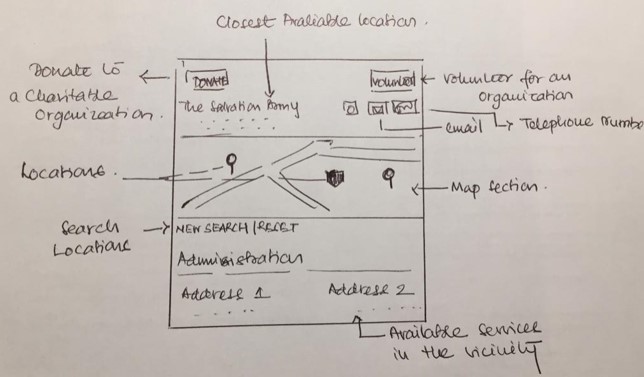 Closest Avaliable location.
Donate to
a Charitable
Organization.
DONATE
Volunteer
Volunteer for an
Organization
The Salvation Army
email
Telephone Numbe
Locations.
Map section.
Search
Locations
NEW SEARCH / RESET
Administration
Address 1
Address 2
Available Services
in the vicinity